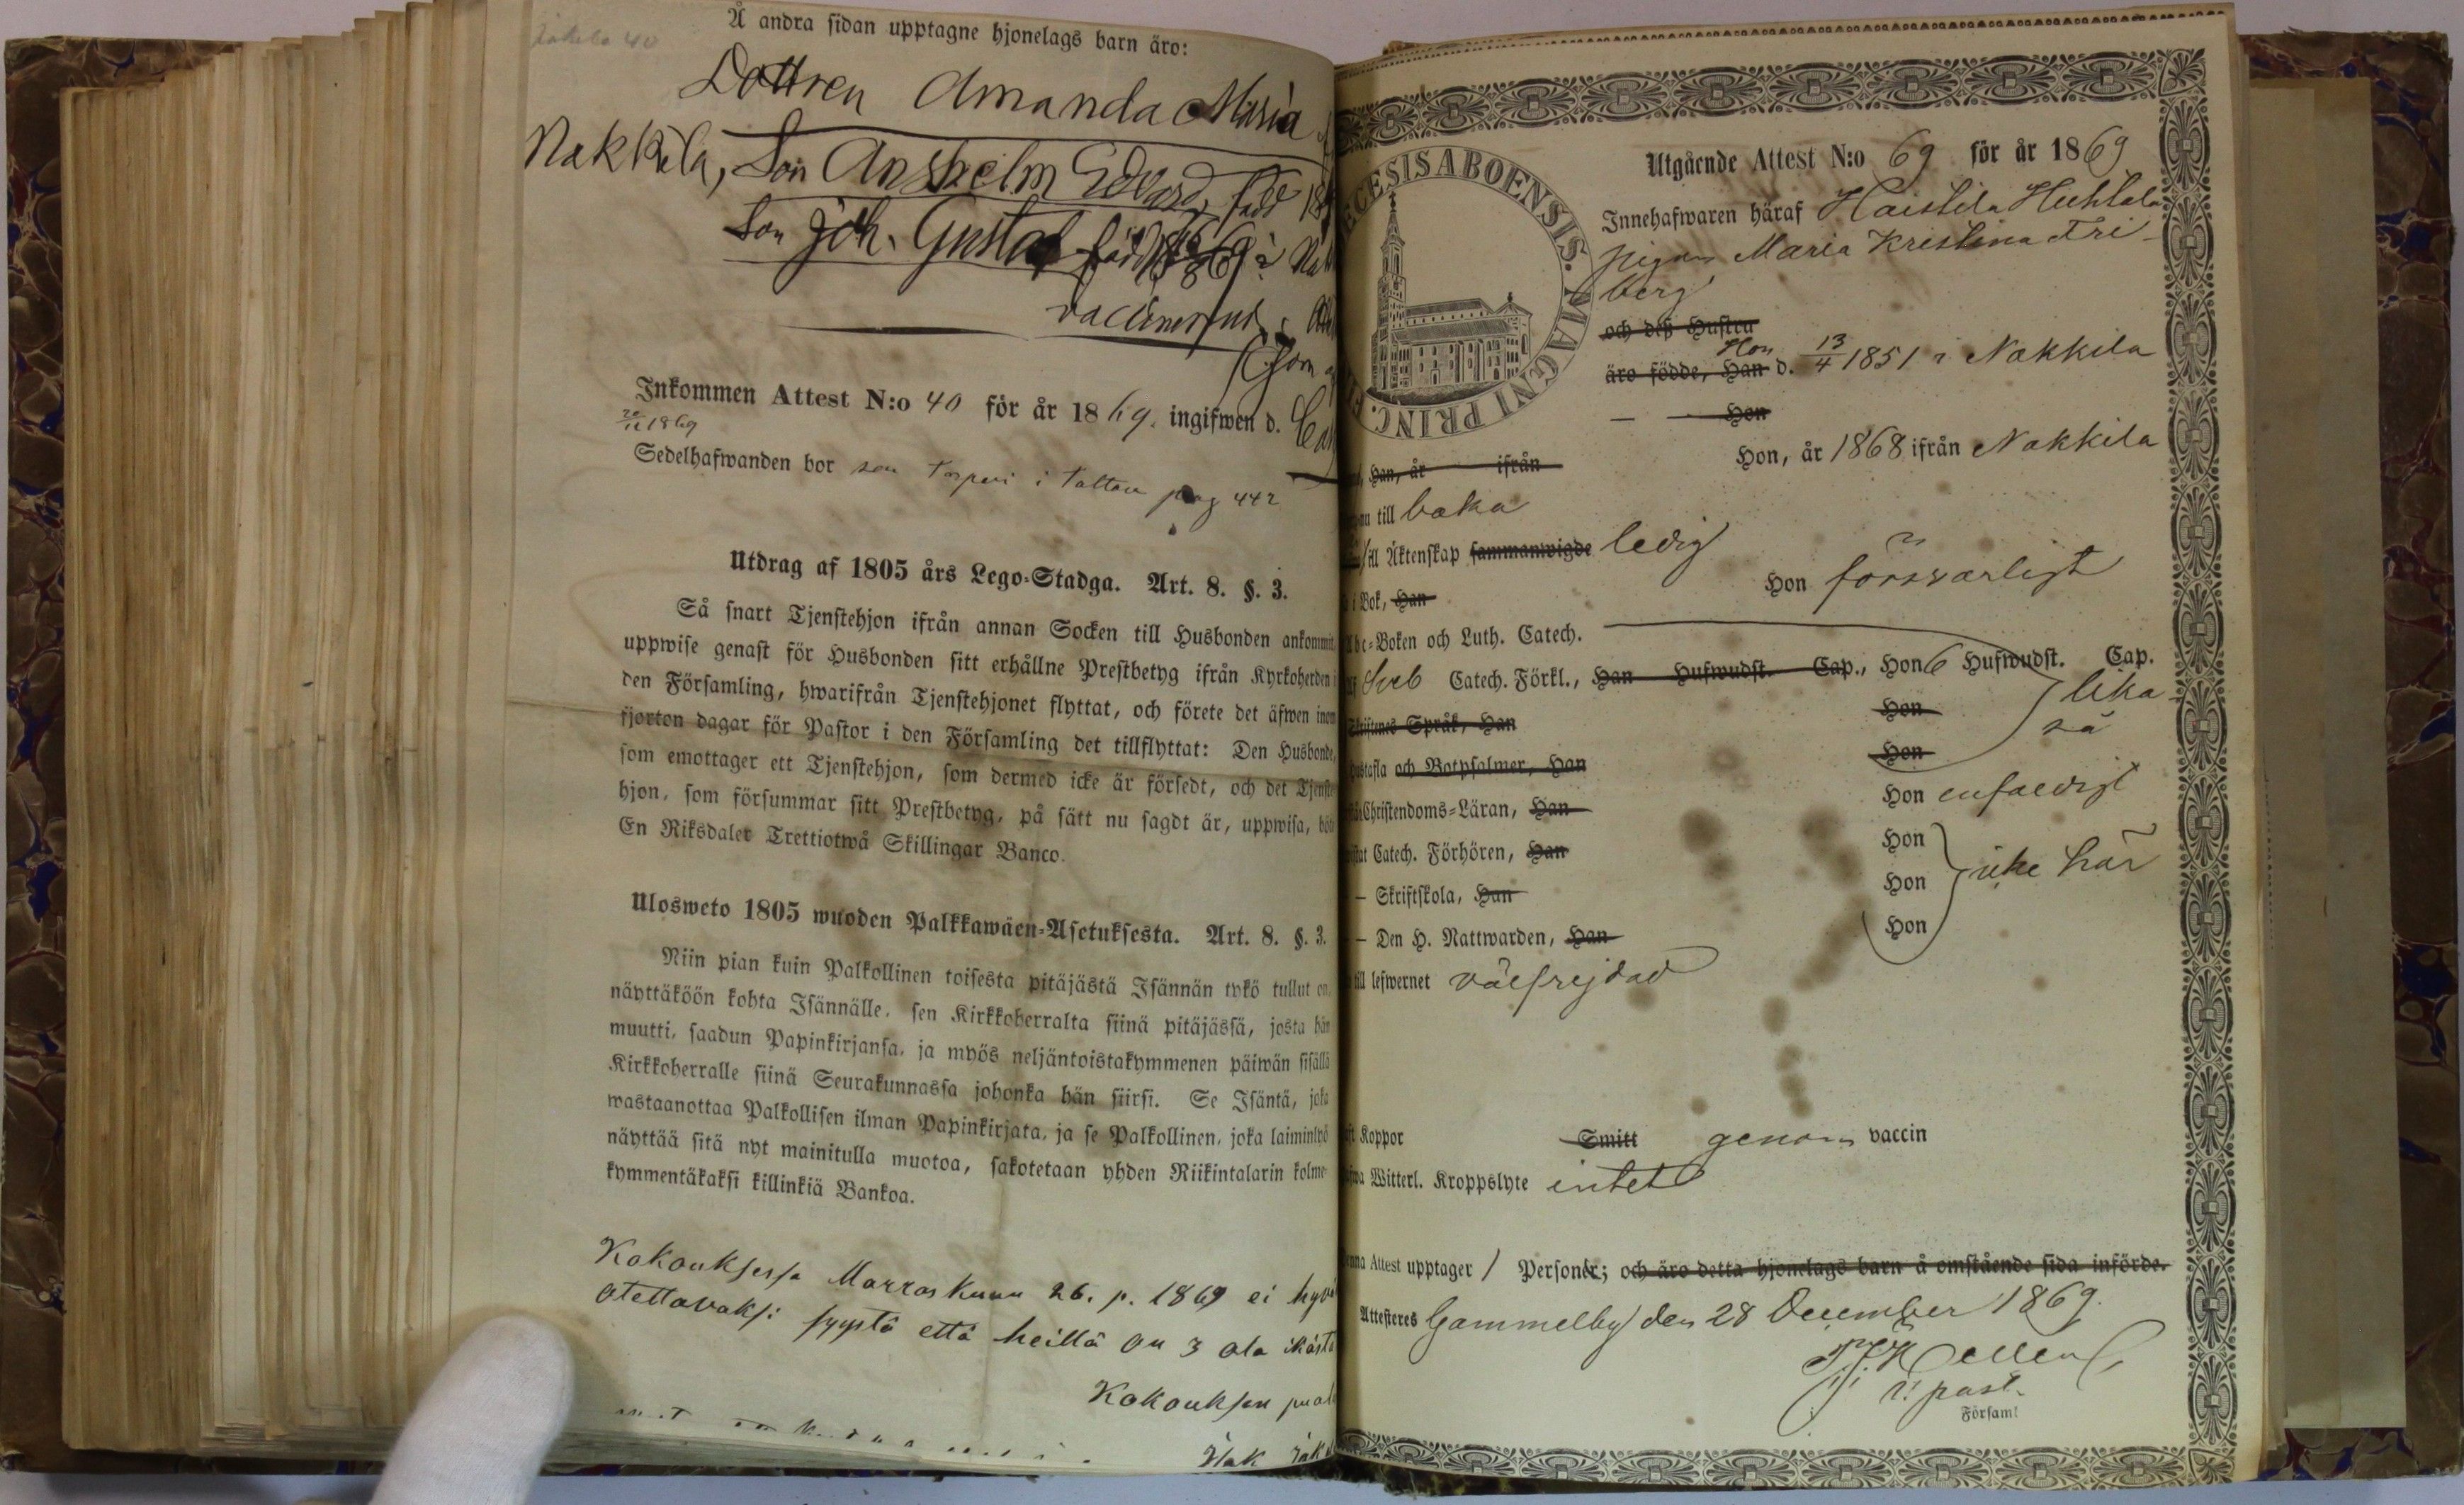 Å andra sidan upptagne hjonelags barn äro:
Dottren Amanda Maria
Nakkila, Son Anshelm Edvard, född
Son Joh. Gustaf född
Inkommen Attest N:o 40 för år 1869. ingifwen d.
1869
Sedelhafwanden bor som torpari i Tattara pag 442
Utdrag af 1805 års Lego-Stadga. Art. 8. §. 3.
Så snart Tjenstehjon ifrån annan Socken till Husbonden ankommit,
uppwise genast för Husbonden sitt erhållne Prestbetyg ifrån Kyrkoherden i
den Församling, hwarifrån Tjenstehjonet flyttat, och förete det äfwen inom
fjorton dagar för Pastor i den Församling det tillflyttat: Den Husbonde,
som emottager ett Tjenstehjon, som dermed icke är försedt, och det Tjenste-
hjon, som försummar sitt Prestbetyg, på sätt nu sagdt är, uppwisa, böte
En Riksdaler Trettiotwå Skillingar Banco.
Ulosweto 1805 wuoden Palkkawäen-Asetuksesta. Art. 8. §. 3.
Niin pian kuin Palkollinen toisesta pitäjästä Isännän tykö tullut on,
näyttäköön kohta Isännälle, sen Kirkkoherralta siinä pitäjässä, josta hän
muutti, saadun Papinkirjansa, ja myös neljäntoistakymmenen päiwän sisällä
Kirkkoherralle siinä Seurakunnassa johonka hän siirsi. Se Isäntä, joka
wastaanottaa Palkollisen ilman Papinkirjata, ja se Palkollinen, joka laiminlyö
näyttää sitä nyt mainitulla muotoa, sakotetaan yhden Riikintalarin kolme-
kymmentäkaksi killinkiä Bankoa.
Kokouksessa Marraskuun 26. p. 1869 ei
otettavaksi syystä että heillä on 3 ala ikästä
Kokouksen
DIOECESIS ABOENSIS. MAGNI PRINC.
Utgående Attest N:o 69 för år 1869
Innehafwaren häraf Haistila Huhtala
pigan Maria Kristina Fri-
berg
och deß Hustru
Hon
äro födde, Han d. 13/4 1851 i Nakkila
— Hon
Han, år ifrån Hon, år 1868 ifrån Nakkila
nu till baka
till Äktenskap sammanwigde ledig
i Bok, Han Hon försvarligt
Abc-Boken och Luth. Catech.
Sveb Catech. Förkl., Han Hufwudst. Cap., Hon 6 Hufwudst. Cap.
lika
Skriftenes Språk, Han Hon
så
Hustafla och Botpsalmer, Han Hon
Christendoms-Läran, Han Hon enfaldigt
Catech. Förhören, Han Hon
icke här
— Skriftskola, Han Hon
— Den H. Nattwarden, Han Hon
till lefwernet välfrejdad
Koppor Smitt genom vaccin
Witterl. Kroppslyte intet
Denna Attest upptager 1 Personer; och äro detta hjonelags barn å omstående sida införde.
Attesteres Gammelby den 28 December 1869.
v. past.
Församl